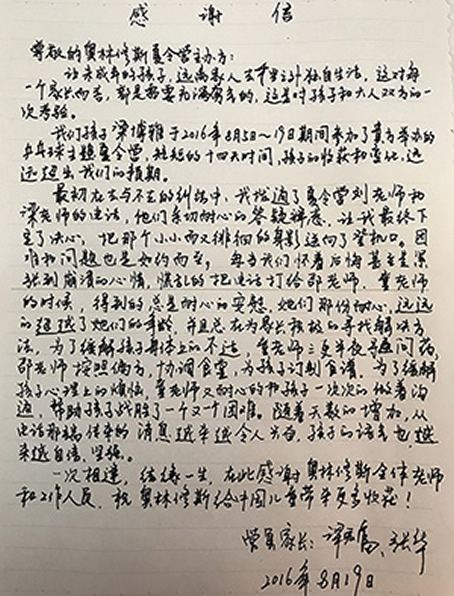 感谢信
尊敬的奥林修斯夏令营主办方：
让未成年的孩子，远离家人去千里之外独自生活，这对每
一个家长而言，都是需要充满勇气的，这是对孩子和大人双方的一
次考验。
我们孩子梁博雅于2016年8月5日～19日期间参加了贵方举办的
乒乓球主题夏令营，短短的十四天时间，孩子的收获和变化，远
远超出我们的预期。
最初在去与不去的纠结中，我拨通了夏令营刘老师和
梁老师的电话，他们亲切耐心的答疑解惑，让我最终下
定了决心，把那个小小而又徘徊的身影送向了登机口。困
难和问题也是如约而至，每当我们怀着后悔甚至是紧
张到崩溃的心情，慌乱的把电话打给邵老师、童老师
的时候，得到的总是耐心的安慰，她们那份耐心，远远
的超越了她们的年龄，并且总在为家长积极的寻找解决方
法，为了缓解孩子身体上的不适，童老师三更半夜寻医问药，
邵老师按照偏方，协调食堂，为孩子订制食谱。为了缓解
孩子心理上的烦恼，童老师又耐心的和孩子一次次的做着沟
通，帮助孩子战胜了一个又一个困难。随着天数的增加，从
电话那端传来的消息越来越令人兴奋，孩子的语气也越
来越自信、坚强。
一次相逢，结缘一生，在此感谢奥林修斯全体老师
和工作人员，祝奥林修斯给中国儿童带来更多收获！
营员家长：
张华
2016年8月19日